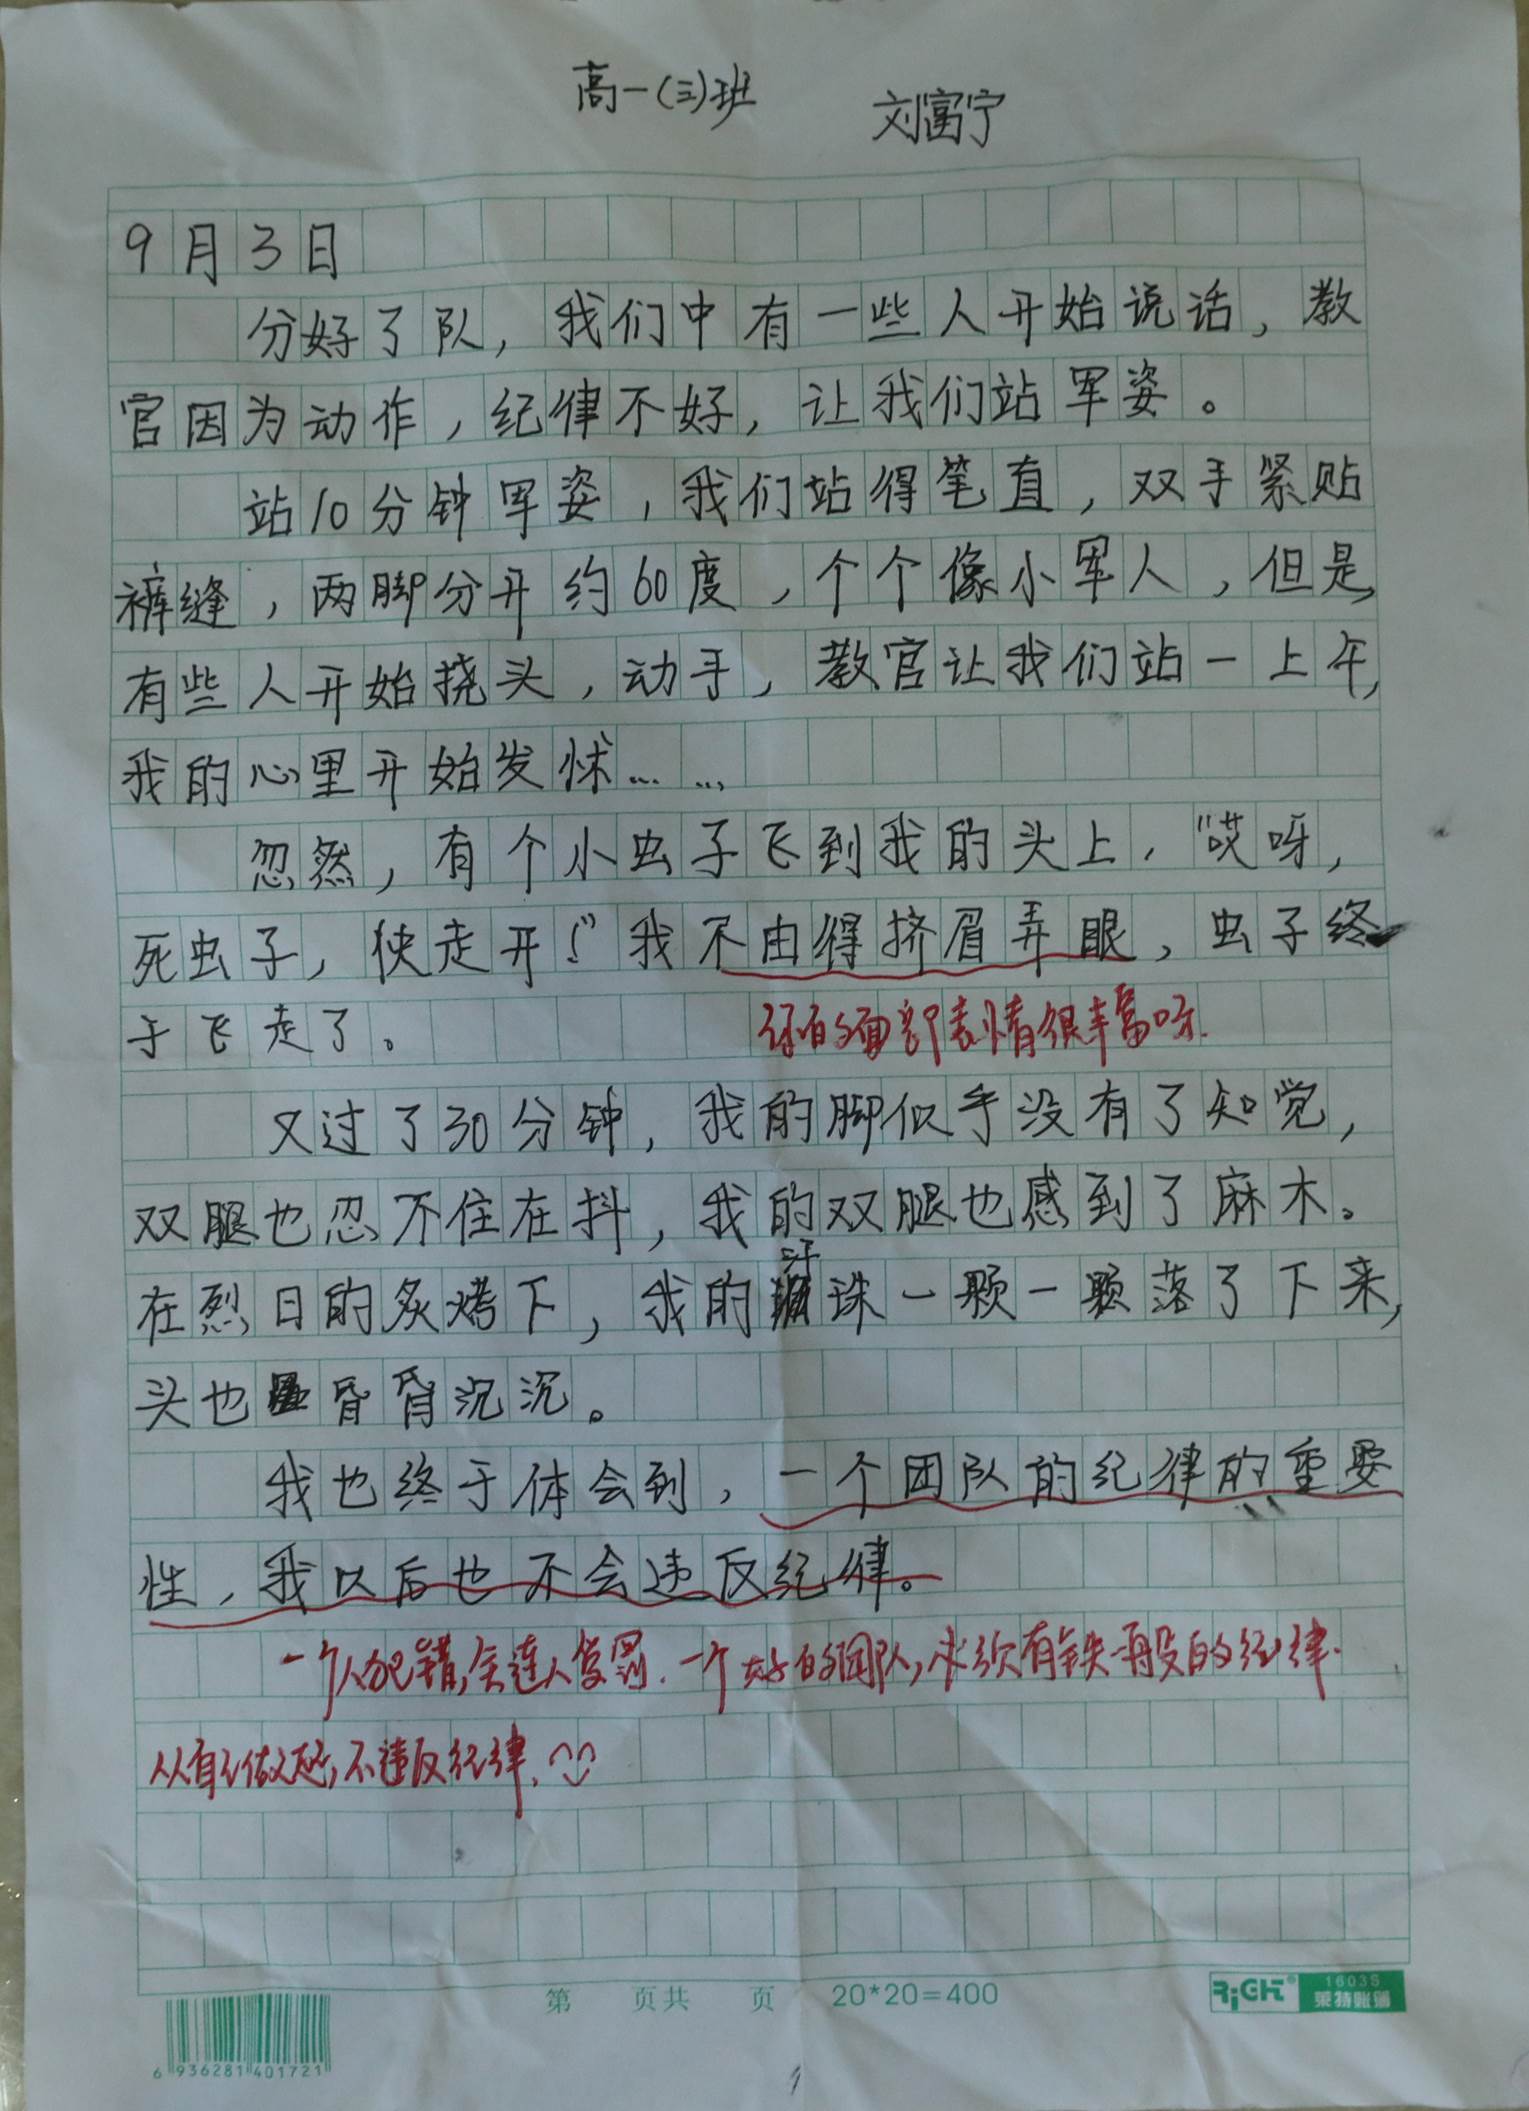 高一(三)班 刘富宁
9月3日
分好了队，我们中有一些人开始说话，教
官因为动作，纪律不好，让我们站军姿。
站10分钟军姿，我们站得笔直，双手紧贴
裤缝，两脚分开约60度，个个像小军人，但是，
有些人开始挠头，动手，教官让我们站一上午，
我的心里开始发怵……
忽然，有个小虫子飞到我的头上，“哎呀，
死虫子，快走开！”我不由得挤眉弄眼，虫子终
于飞走了。
你的面部表情很丰富呀.
又过了30分钟，我的脚似乎没有了知觉，
双腿也忍不住在抖，我的双腿也感到了麻木。
在烈日的炙烤下，我的汗珠一颗一颗落了下来，
头也昏昏沉沉。
我也终于体会到，一个团队的纪律的重要
性，我以后也不会违反纪律。
一个人犯错，会连人受罚.一个好的团队，必须有铁一般的纪律.
从自己做起，不违反纪律.
第 页共 页 20*20=400
RiGHT® 1603S
莱特账簿
6 936281 401721